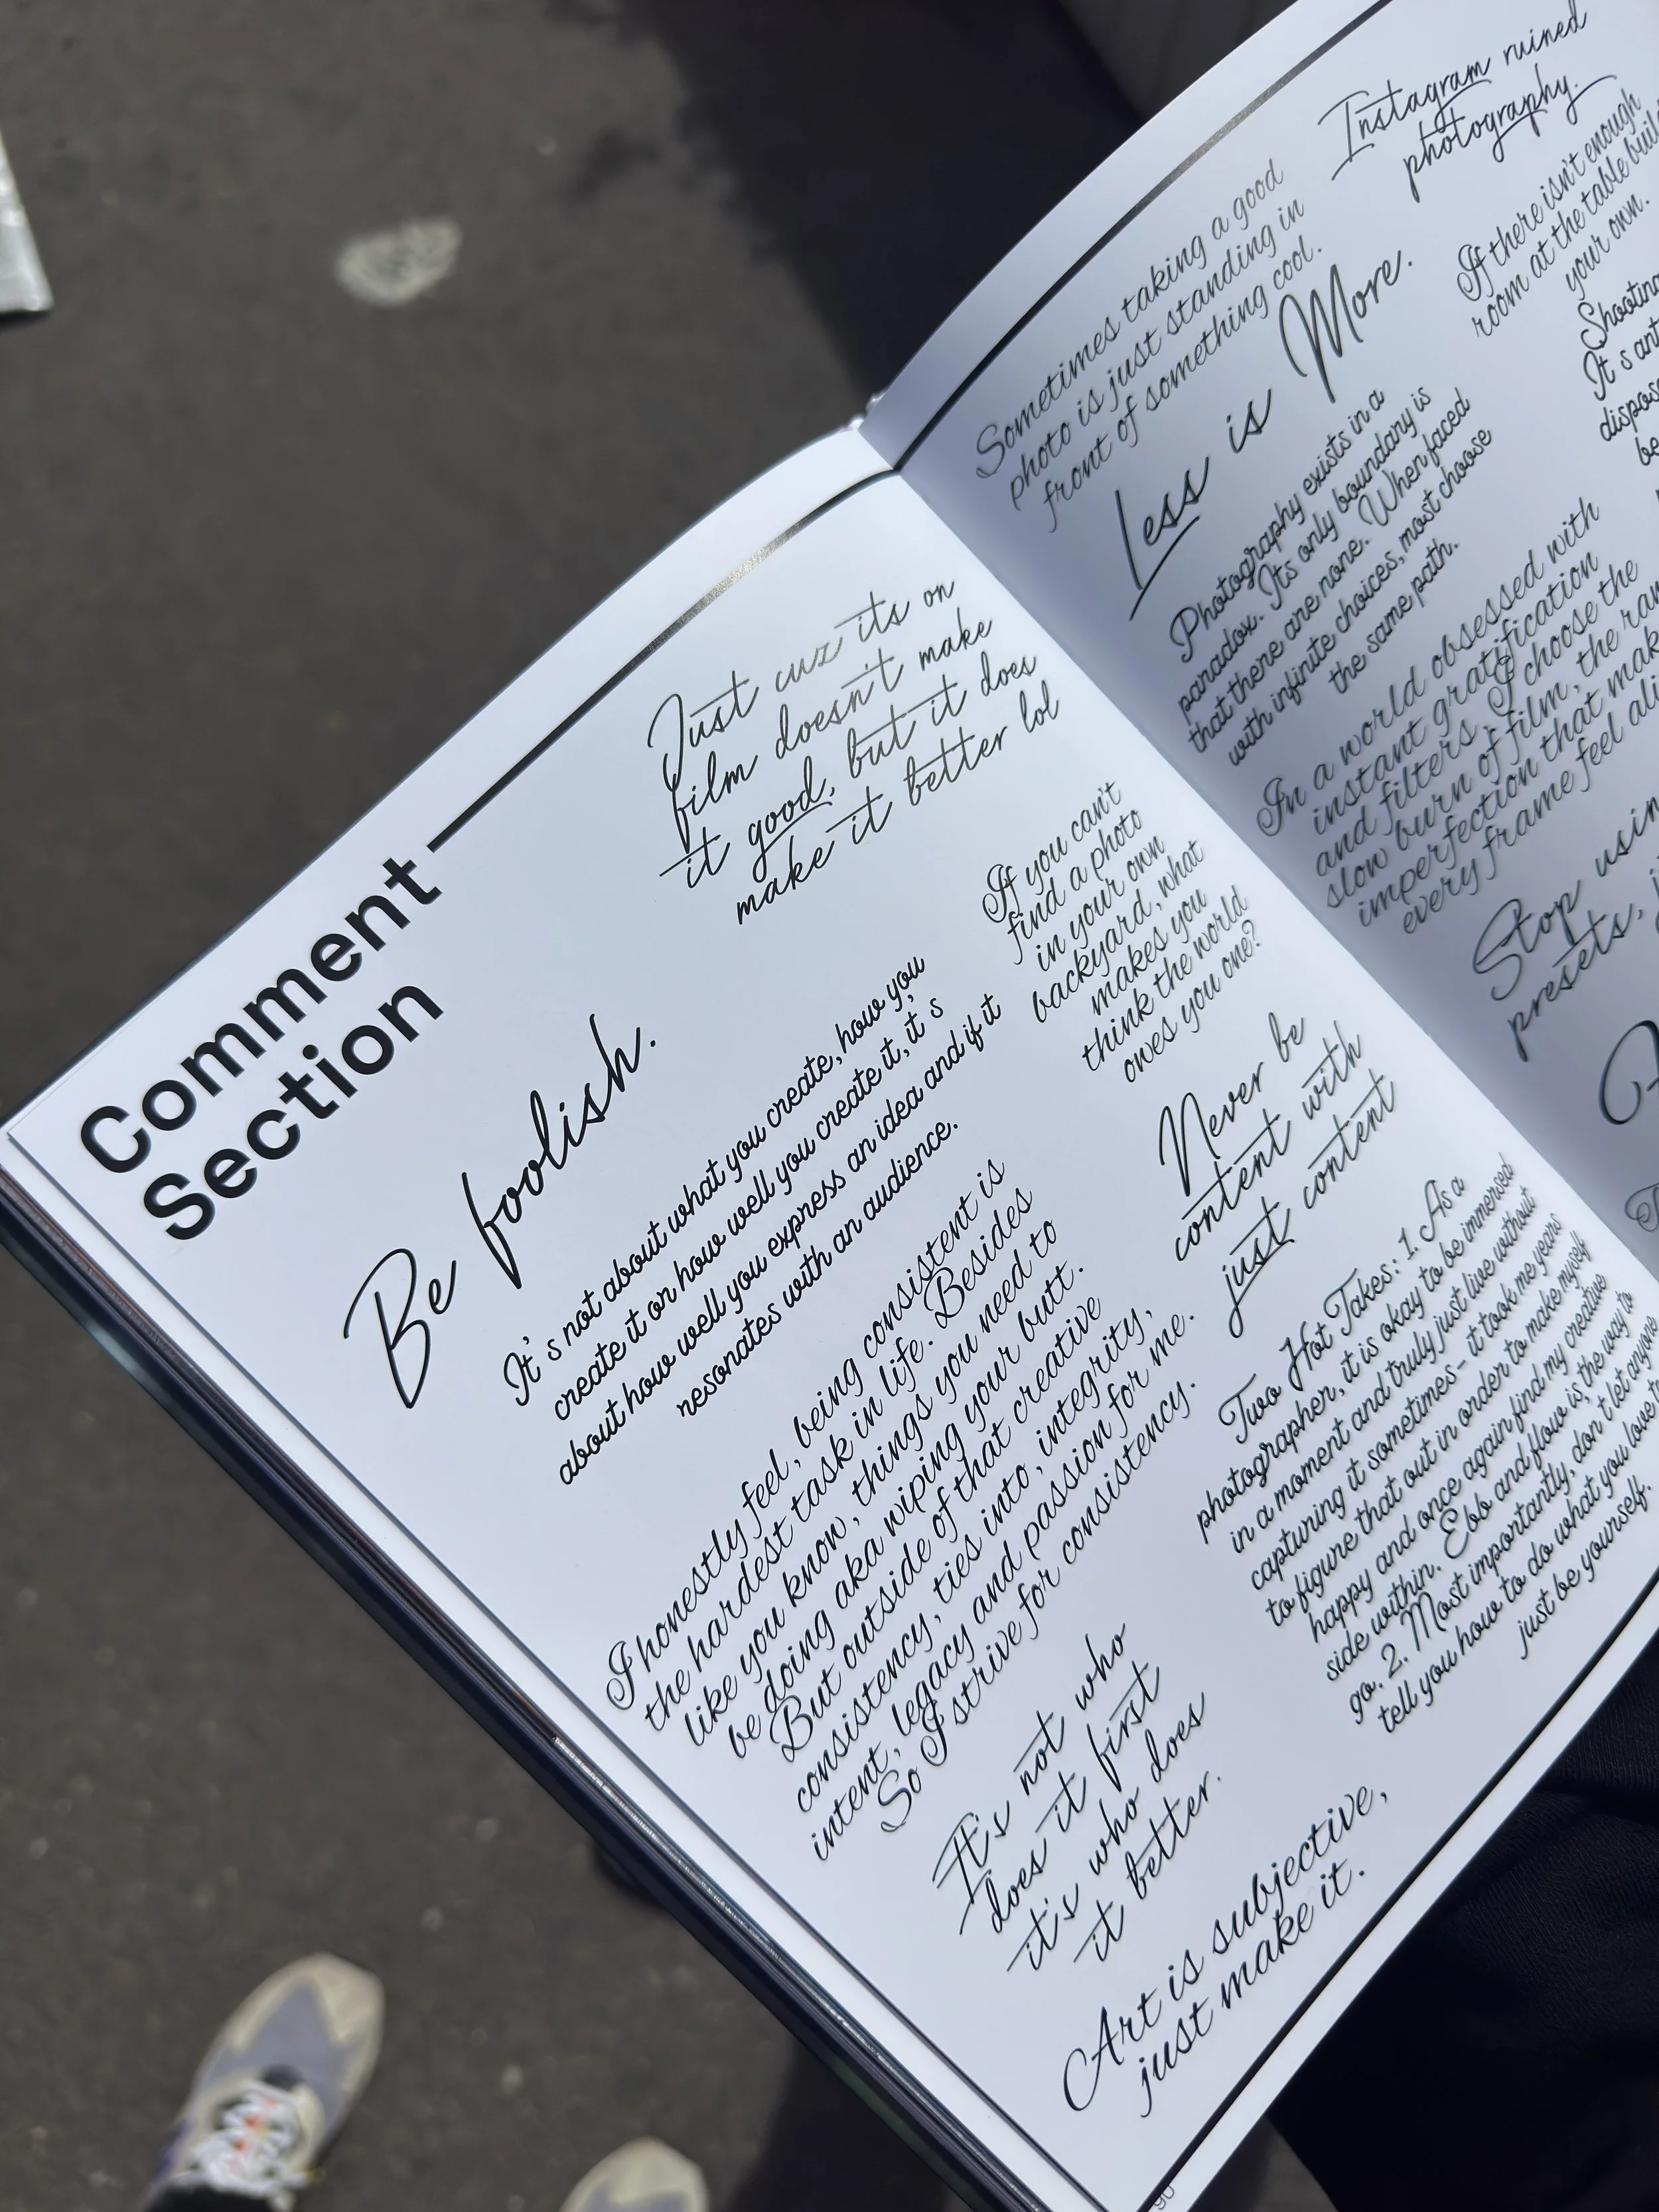 Comment
Section
Just cuz its on
film doesn't make
it good, but it does
make it better lol
Be foolish.
It's not about what you create, how you
create it or how well you create it, it's
about how well you express an idea and if it
resonates with an audience.
If you can't
find a photo
in your own
backyard, what
makes you
think the world
owes you one?
I honestly feel, being consistent is
the hardest task in life. Besides
like you know, things you need to
be doing aka wiping your butt.
But outside of that creative
consistency, ties into, integrity,
intent, legacy and passion for me.
So I strive for consistency.
Never be
content with
just content
Two Hot Takes: 1. As a
photographer, it is okay to be immersed
in a moment and truly just live without
capturing it sometimes - it took me years
to figure that out in order to make myself
happy and once again find my creative
side within. Ebb and flow is the way to
go. 2. Most importantly, don't let anyone
tell you how to do what you love
just be yourself.
It's not who
does it first
it's who does
it better.
Art is subjective,
just make it.
90
Instagram ruined
photography.
Sometimes taking a good
photo is just standing in
front of something cool.
If there isn't enough
room at the table build
your own.
Less is More.
Shooting
It's
Photography exists in a
paradox. Its only boundary is
that there are none. When faced
with infinite choices, most choose
the same path.
be
In a world obsessed with
instant gratification
and filters, I choose the
slow burn of film, the
imperfection that
every frame feel
Stop
presets,